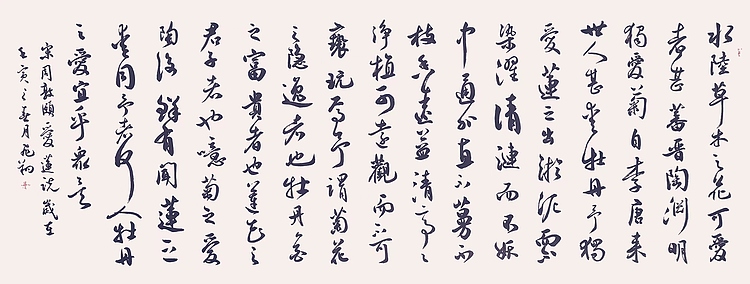 水陸草木之花可愛
者甚蕃晉陶淵明
獨愛菊自李唐来
世人甚愛牡丹予獨
愛蓮之出淤泥而不
染濯清漣而不妖
中通外直不蔓不
枝香遠益清亭亭
淨植可遠觀而不可
褻玩焉予謂菊花
之隱逸者也牡丹花
之富貴者也蓮花之
君子者也噫菊之愛
陶後鮮有聞蓮之
愛同予者何人牡丹
之愛宜乎眾矣
宋周敦頤愛蓮説歲在
壬寅之春月